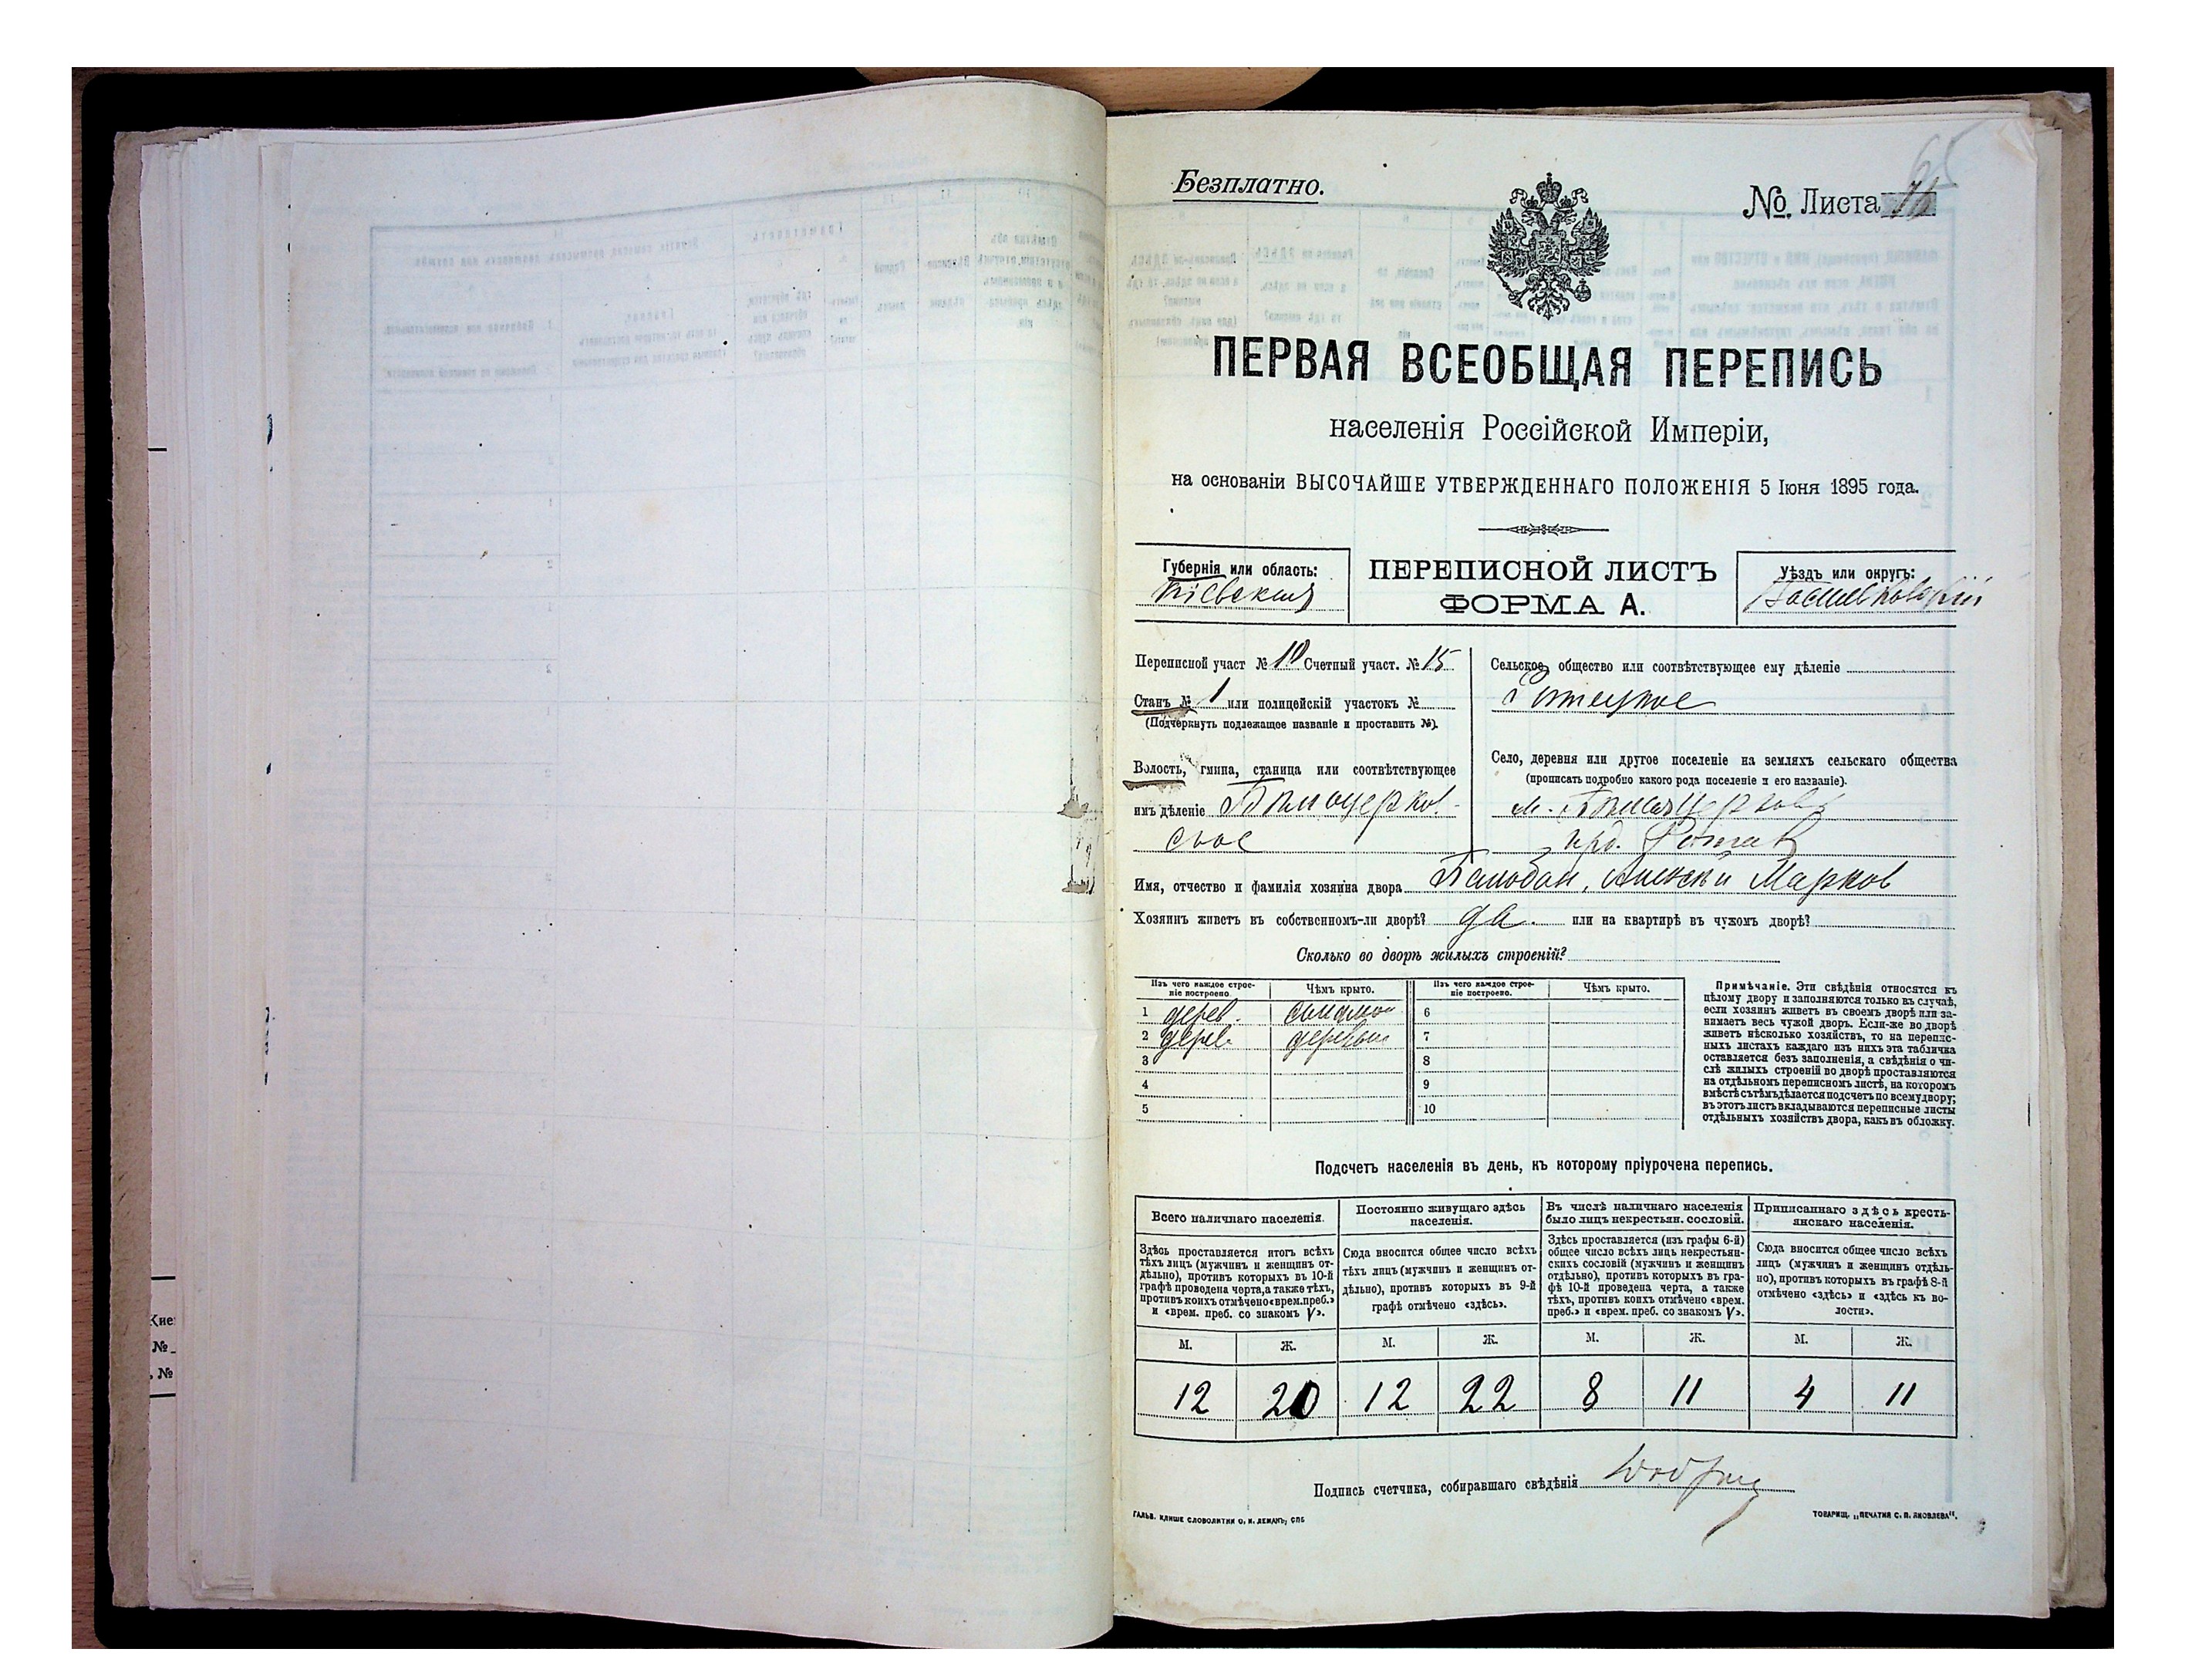 65
Безплатно.
№ Листа 76
ПЕРВАЯ ВСЕОБЩАЯ ПЕРЕПИСЬ
населенія Россійской Имперіи,
на основаніи ВЫСОЧАЙШЕ УТВЕРЖДЕННАГО ПОЛОЖЕНІЯ 5 Іюня 1895 года.
Губернія или область:
Кіевская
ПЕРЕПИСНОЙ ЛИСТЪ
ФОРМА А.
Уѣздъ или округъ:
Васильковскій
Переписной участ № 10 Счетный участ. № 15
Станъ № 1 или полицейскій участокъ №
(Подчеркнуть подлежащее названіе и проставить №).
Волость, гмина, станица или соотвѣтствующее
имъ дѣленіе Бѣлоцерков-
ское
Сельское общество или соотвѣтствующее ему дѣленіе
Село, деревня или другое поселеніе на земляхъ сельскаго общества
(прописать подробно какого рода поселеніе и его названіе).
м. Бѣлая Церковь
Имя, отчество и фамилія хозяина двора Балобан, Алексѣй Марков
Хозяинъ живетъ въ собственномъ-ли дворѣ? да. или на квартирѣ въ чужомъ дворѣ?
Сколько во дворѣ жилыхъ строеній?
Изъ чего каждое строе-
ніе построено.
Чѣмъ крыто.
Изъ чего каждое строе-
ніе построено.
Чѣмъ крыто.
1 дерев. соломою 6
2 дерев. деревом 7
3 8
4 9
5 10
Примѣчаніе. Эти свѣдѣнія относятся къ
цѣлому двору и заполняются только въ случаѣ,
если хозяинъ живетъ въ своемъ дворѣ или за-
нимаетъ весь чужой дворъ. Если-же во дворѣ
живетъ нѣсколько хозяйствъ, то на перепис-
ныхъ листахъ каждаго изъ нихъ эта табличка
оставляется безъ заполненія, а свѣдѣнія о чи-
слѣ жилыхъ строеній во дворѣ проставляются
на отдѣльномъ переписномъ листѣ, на которомъ
вмѣстѣ съ тѣмъ дѣлается подсчетъ по всему двору;
въ этотъ листъ вкладываются переписные листы
отдѣльныхъ хозяйствъ двора, какъ въ обложку.
Подсчетъ населенія въ день, къ которому пріурочена перепись.
Всего наличнаго населенія.
Здѣсь проставляется итогъ всѣхъ
тѣхъ лицъ (мужчинъ и женщинъ от-
дѣльно), противъ которыхъ въ 10-й
графѣ проведена черта, а также тѣхъ,
противъ коихъ отмѣчено «врем. преб.»
и «врем. преб. со знакомъ V».
Постоянно живущаго здѣсь
населенія.
Сюда вносится общее число всѣхъ
тѣхъ лицъ (мужчинъ и женщинъ от-
дѣльно), противъ которыхъ въ 9-й
графѣ отмѣчено «здѣсь».
Въ числѣ наличнаго населенія
было лицъ некрестьян. сословій.
Здѣсь проставляется (изъ графы 6-й)
общее число всѣхъ лицъ некрестьян-
скихъ сословій (мужчинъ и женщинъ
отдѣльно), противъ которыхъ въ гра-
фѣ 10-й проведена черта, а также
тѣхъ, противъ коихъ отмѣчено «врем.
преб.» и «врем. преб. со знакомъ V».
Приписаннаго здѣсь кресть-
янскаго населенія.
Сюда вносится общее число всѣхъ
лицъ (мужчинъ и женщинъ отдѣль-
но), противъ которыхъ въ графѣ 8-й
отмѣчено «здѣсь» и «здѣсь къ во-
лости».
М. Ж. М. Ж. М. Ж. М. Ж.
12 20 12 22 8 11 4 11
Подпись счетчика, собиравшаго свѣдѣнія
ГАЛЬВ. КЛИШЕ СЛОВОЛИТНИ О. И. ЛЕМАНЪ, СПБ
ТОВАРИЩ. „ПЕЧАТНЯ С. П. ЯКОВЛЕВА".